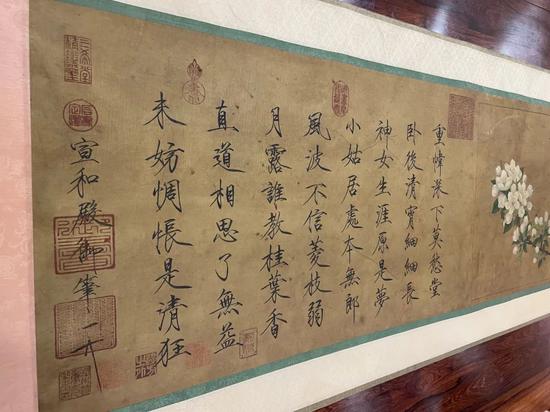 重幃深下莫愁堂
卧後清宵細細長
神女生涯原是夢
小姑居處本無郎
風波不信菱枝弱
月露誰教桂葉香
直道相思了無益
未妨惆悵是清狂
宣和殿御筆